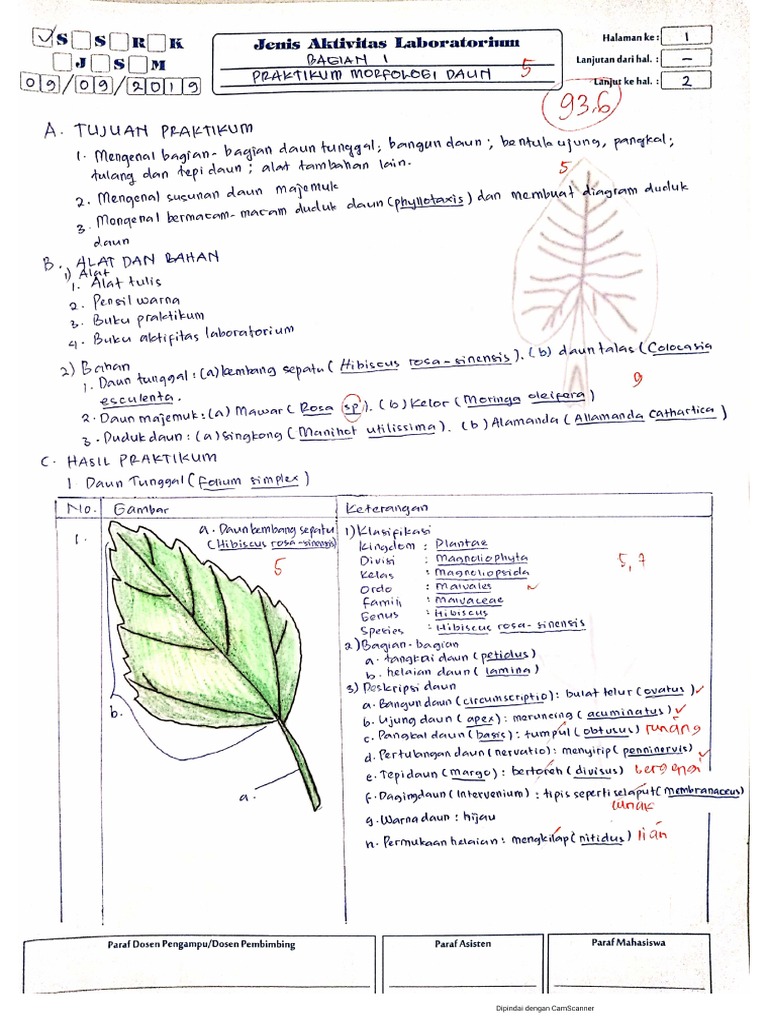 ✓ S □ S □ R □ K
□ J □ S □ M
09/09/2019
Jenis Aktivitas Laboratorium
BAGIAN 1
PRAKTIKUM MORFOLOGI DAUN
5
Halaman ke : 1
Lanjutan dari hal. : -
Lanjut ke hal. : 2
93.6
A. TUJUAN PRAKTIKUM
1. Mengenal bagian-bagian daun tunggal; bangun daun; bentuk ujung, pangkal;
tulang dan tepi daun; alat tambahan lain.
5
2. Mengenal susunan daun majemuk
3. Mengenal bermacam-macam duduk daun (phyllotaxis) dan membuat diagram duduk
daun
B. ALAT DAN BAHAN
1) Alat
1. Alat tulis
2. Pensil warna
3. Buku praktikum
4. Buku aktifitas laboratorium
2) Bahan
1. Daun tunggal : (a) kembang sepatu (Hibiscus rosa-sinensis). (b) daun talas (Colocasia
esculenta.
9
2. Daun majemuk : (a) Mawar (Rosa sp). (b) Kelor (Moringa oleifera)
3. Duduk daun : (a) singkong (Manihot utilissima). (b) Alamanda (Allamanda cathartica)
C. HASIL PRAKTIKUM
1. Daun Tunggal (folium simplex)
No. Gambar Keterangan
1.
a. Daun kembang sepatu
(Hibiscus rosa-sinensis)
5
b.
a.
1) Klasifikasi
Kingdom : Plantae
Divisi : Magnoliophyta
5,7
Kelas : Magnoliopsida
Ordo : Malvales
Famili : Malvaceae
Genus : Hibiscus
Spesies : Hibiscus rosa-sinensis
2) Bagian-bagian
a. tangkai daun (petidus)
b. helaian daun (lamina)
3) Deskripsi daun
a. Bangun daun (circumscriptio) : bulat telur (ovatus) ✓
b. Ujung daun (apex) : meruncing (acuminatus) ✓
c. Pangkal daun (basis) : tumpul (obtusus)
d. Pertulangan daun (nervatio) : menyirip (penninervis) ✓
e. Tepi daun (margo) : bertoreh (divisus) bergerigi
f. Daging daun (Intervenium) : tipis seperti selaput (membranaceus)
lunak
g. Warna daun : hijau
h. Permukaan helaian : mengkilap (nitidus)
Paraf Dosen Pengampu/Dosen Pembimbing
Paraf Asisten
Paraf Mahasiswa
Dipindai dengan CamScanner